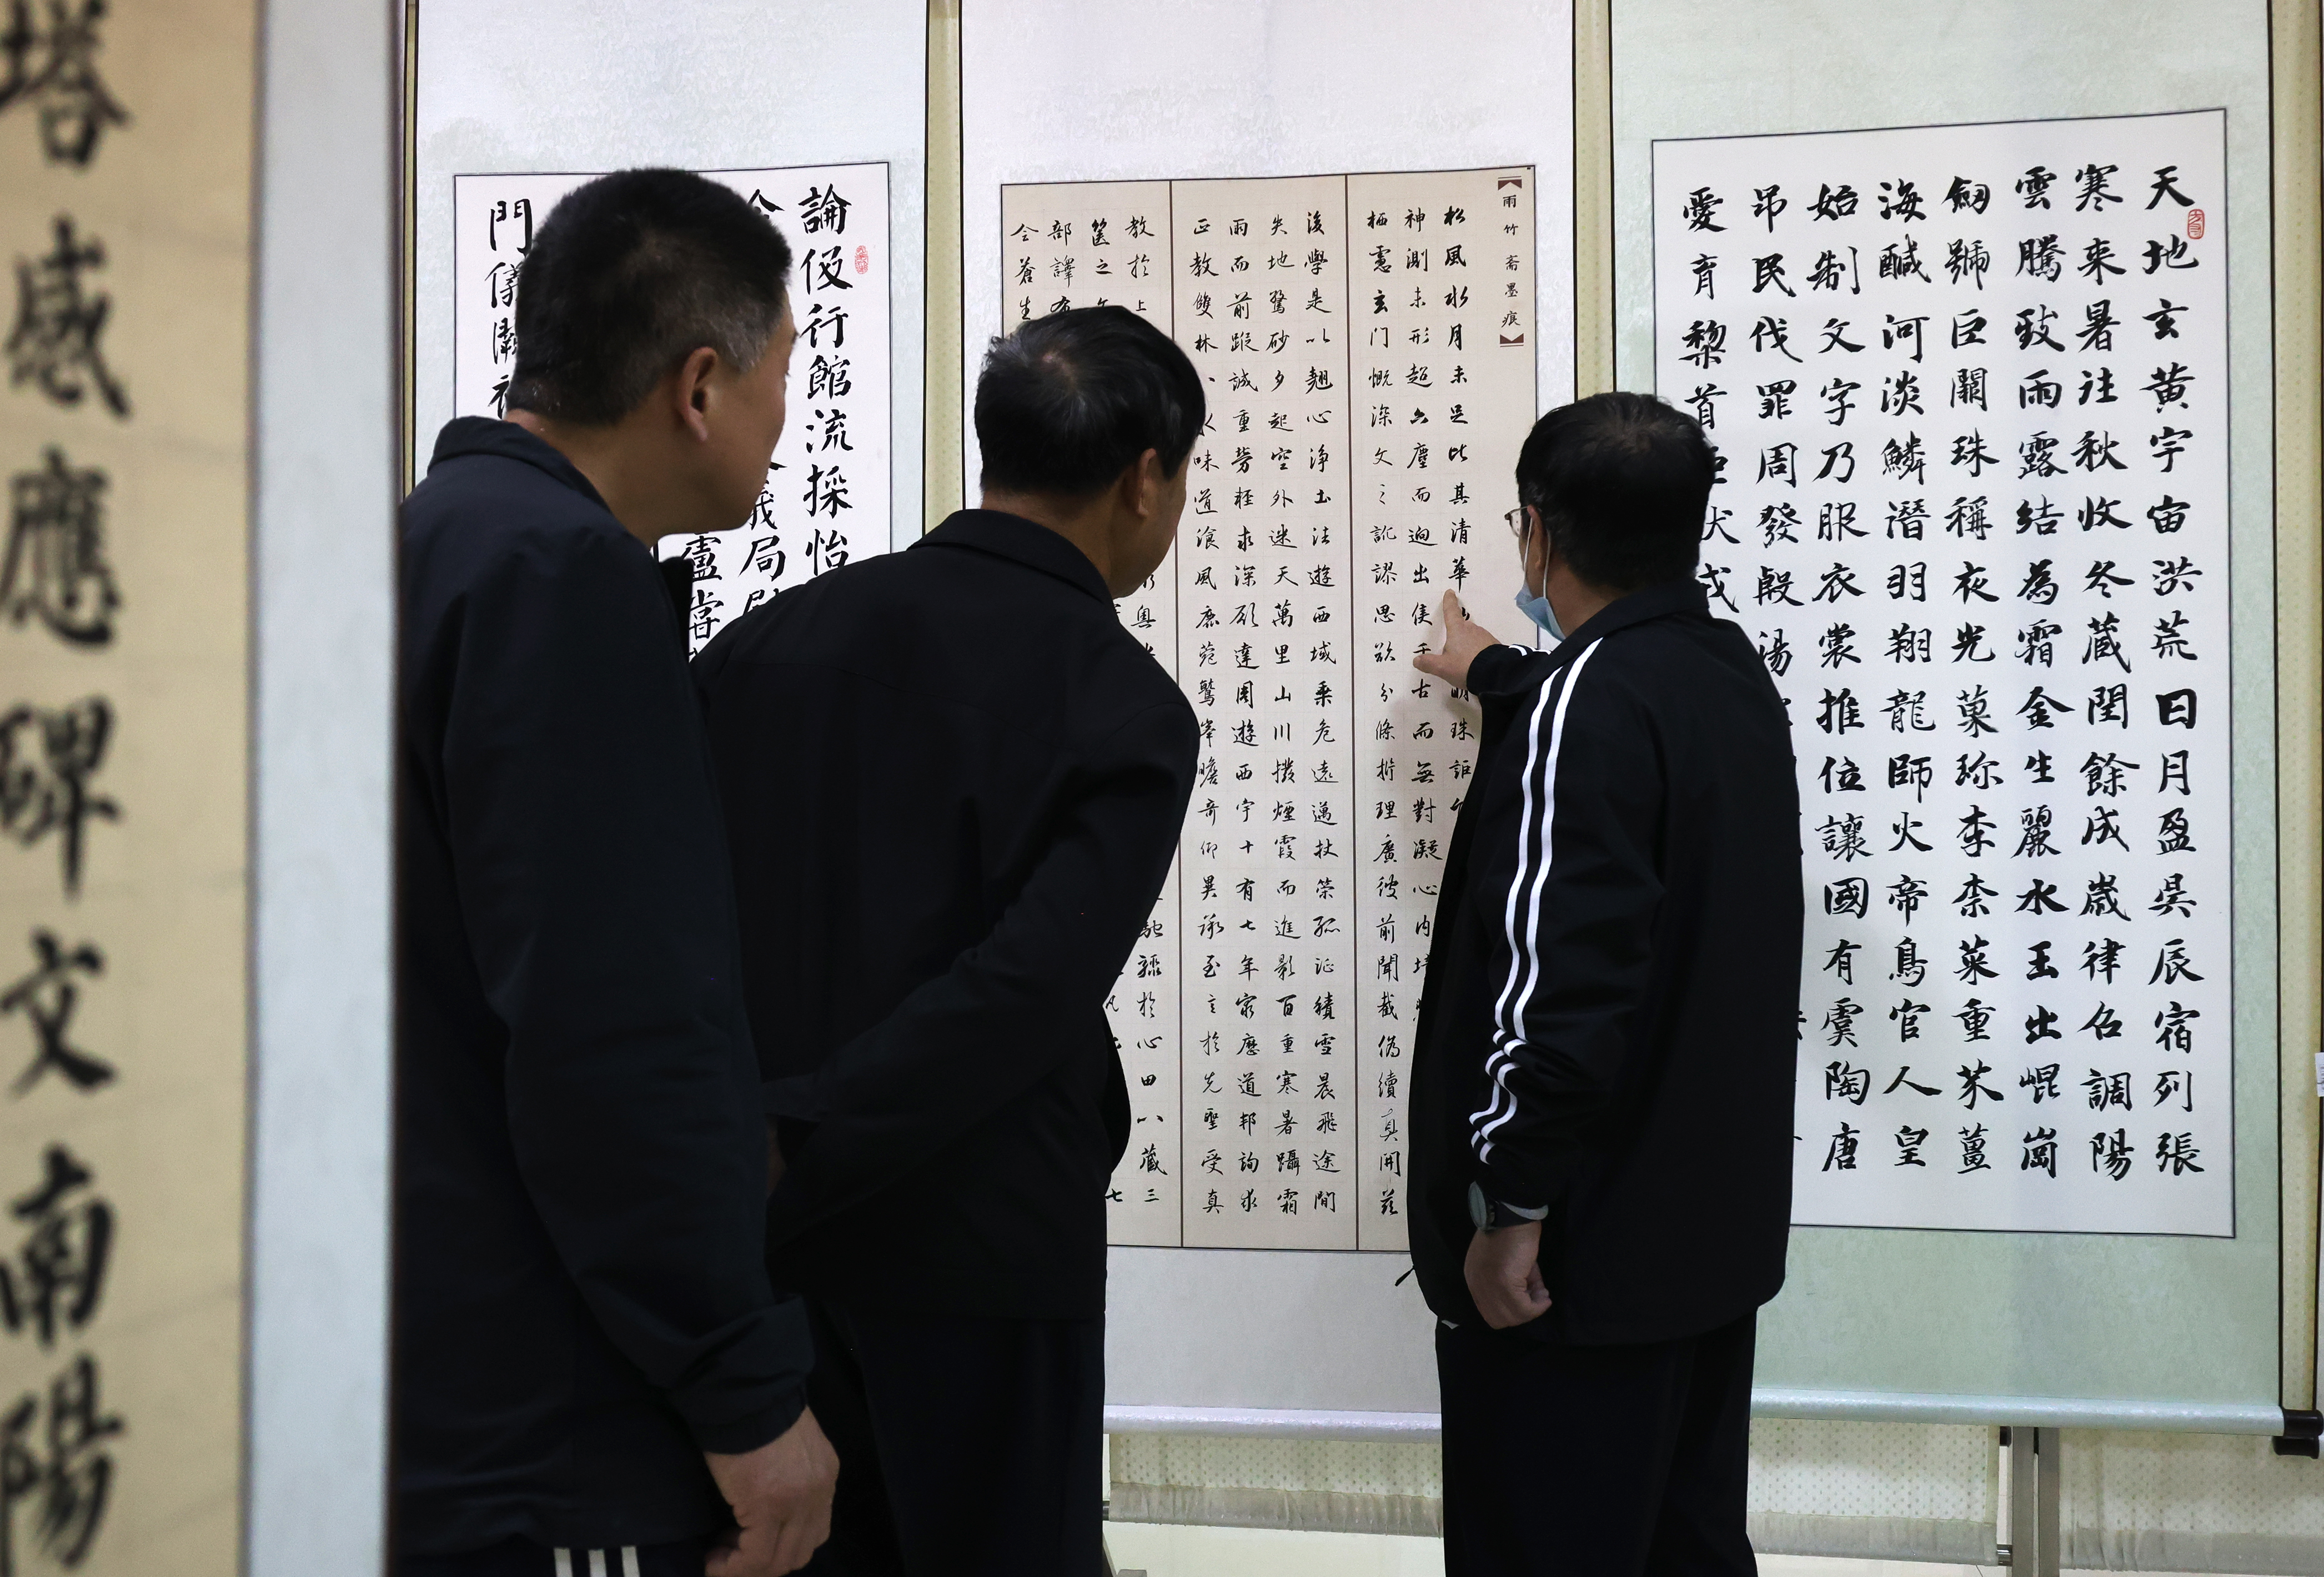 天地玄黄宇宙洪荒日月盈昃辰宿列張
寒来暑往秋收冬蔵閏餘成歲律召調陽
雲騰致雨露結為霜金生麗水玉出崐崗
劒號巨闕珠稱夜光菓珍李柰菜重芥薑
海鹹河淡鱗潛羽翔龍師火帝鳥官人皇
始制文字乃服衣裳推位讓國有虞陶唐
弔民伐罪周發殷湯
愛育黎首臣伏戎
雨竹斋墨痕
松風水月未足比其清華明珠詎
神測未形超六塵而迥出隻千古而無對凝心内境
栖慮玄門慨深文之訛謬思欲分條析理廣彼前聞截偽續真開茲
後學是以翹心淨土法遊西域乘危遠邁杖策孤征積雪晨飛途間
失地驚砂夕起空外迷天萬里山川撥煙霞而進影百重寒暑躡霜
雨而前蹤誠重勞輕求深願達周遊西宇十有七年窮歷道邦詢求
正教雙林八水味道飡風鹿菀鷲峯瞻奇仰異承至言於先聖受真
教於上奧馳驟於心田以藏三
篋之七
部譯布
蒼生
論伋行館流採怡
局
盧當
門儀
塔感應碑文南陽